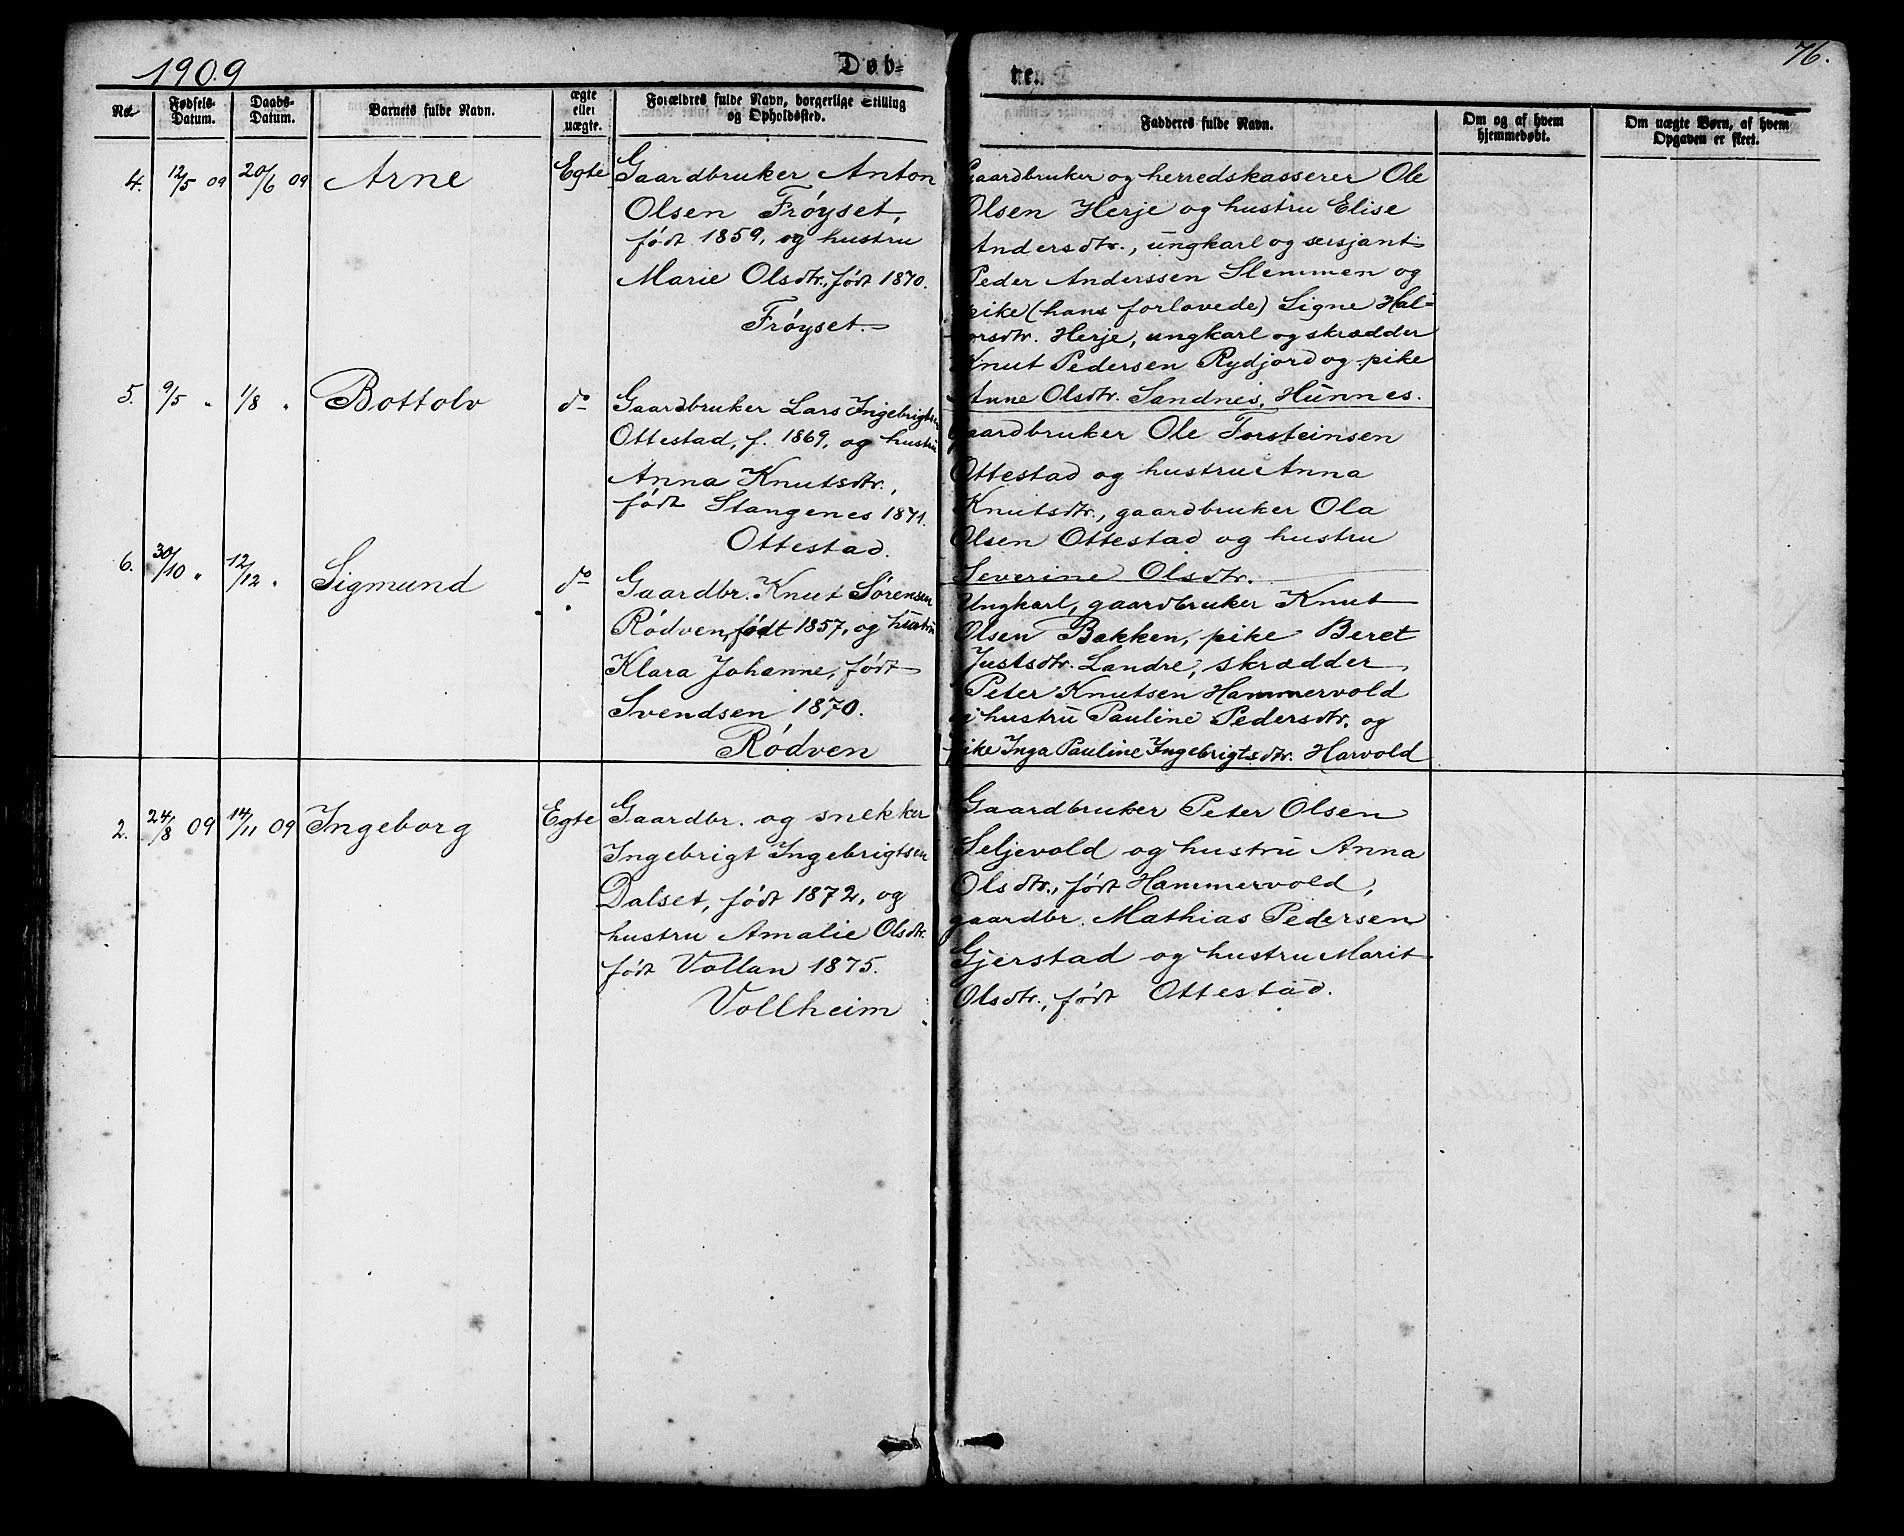 1909
Døb-
te.
76.
No.
Fødsels-
Datum.
Daabs-
Datum.
Barnets fulde Navn.
ægte
eller
uægte.
Forældres fulde Navn, borgerlige Stilling
og Opholdssted.
Fadderes fulde Navn.
Om og af hvem
hjemmedøbt.
Om uægte Børn, af hvem
Opgaven er skeet.
4. 12/5 09 20/6 09 Arne Egte Gaardbruker Anton
Olsen Frøyset,
født 1859, og hustru
Marie Olsdtr., født 1870.
Frøyset.
Gaardbruker og herredskasserer Ole
Olsen Herje og hustru Elise
Andersdtr., ungkarl og sersjant
Peder Anderssen Slemmen og
pike (hans forlovede) Signe Hal-
vorsdtr. Herje, ungkarl og skrædder
Knut Pedersen Rydjord og pike
Anne Olsdtr. Sandnes, Hunnes.
5. 9/5 " 1/8 " Bottolv do Gaardbruker Lars Ingebrigtsen
Ottestad, f. 1869, og hustru
Anna Knutsdtr.,
født Stangenes 1871.
Ottestad.
Gaardbruker Ole Torsteinsen
Ottestad og hustru Anna
Knutsdtr., gaardbruker Ola
Olsen Ottestad og hustru
Severine Olsdtr.
6. 30/10 " 12/12 " Sigmund do Gaardbr. Knut Sørensen
Rødven, født 1857, og hustru
Klara Johanne, født
Svendsen 1870.
Rødven
Ungkarl, gaardbruker Knut
Olsen Bakken, pike Beret
Justsdtr. Landre, skrædder
Peter Knutsen Hammervold
og hustru Pauline Pedersdtr. og
pike Inga Pauline Ingebrigtsdtr. Harvold
2. 24/8 09 14/11 09 Ingeborg Egte Gaardbr. og snekker
Ingebrigt Ingebrigtsen
Dalset, født 1872, og
hustru Amalie Olsdtr.
født Vollan 1875.
Vollheim
Gaardbruker Peter Olsen
Seljevold og hustru Anna
Olsdtr., født Hammervold,
gaardbr. Mathias Pedersen
Gjerstad og hustru Marit
Olsdtr., født Ottestad.